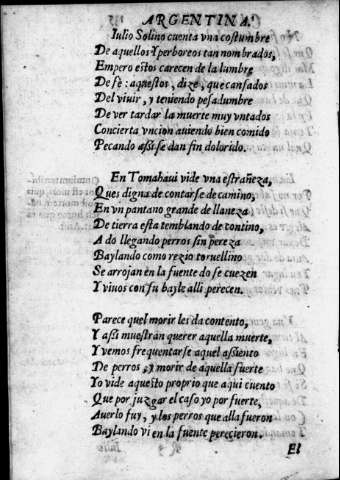 ARGENTINA.
Iulio Solino cuenta vna costumbre
De aquellos Yperboreos tan nombrados,
Empero estos carecen de la lumbre
De fè: aquestos, dize, que cansados
Del viuir, y teniendo pesadumbre
De ver tardar la muerte muy vntados
Concierta vncion auiendo bien comido
Pecando assi se dan fin dolorido.
En Tomahaui vide vna estrañeza,
Ques digna de contarse de camino,
En vn pantano grande de llaneza
De tierra esta temblando de contino,
A do llegando perros sin pereza
Baylando como rezio toruellino
Se arrojan en la fuente do se cuezen
Y viuos con su bayle alli perecen.
Parece quel morir les da contento,
Y assi muestran querer aquella muerte,
Y vemos frequentarse aquel assiento
De perros, y morir de aquella suerte
Yo vide aquesto proprio que aqui cuento
Que por juzgar el caso yo por fuerte,
Auerlo fuy, y los perros que alla fueron
Baylando vi en la fuente perecieron.
El